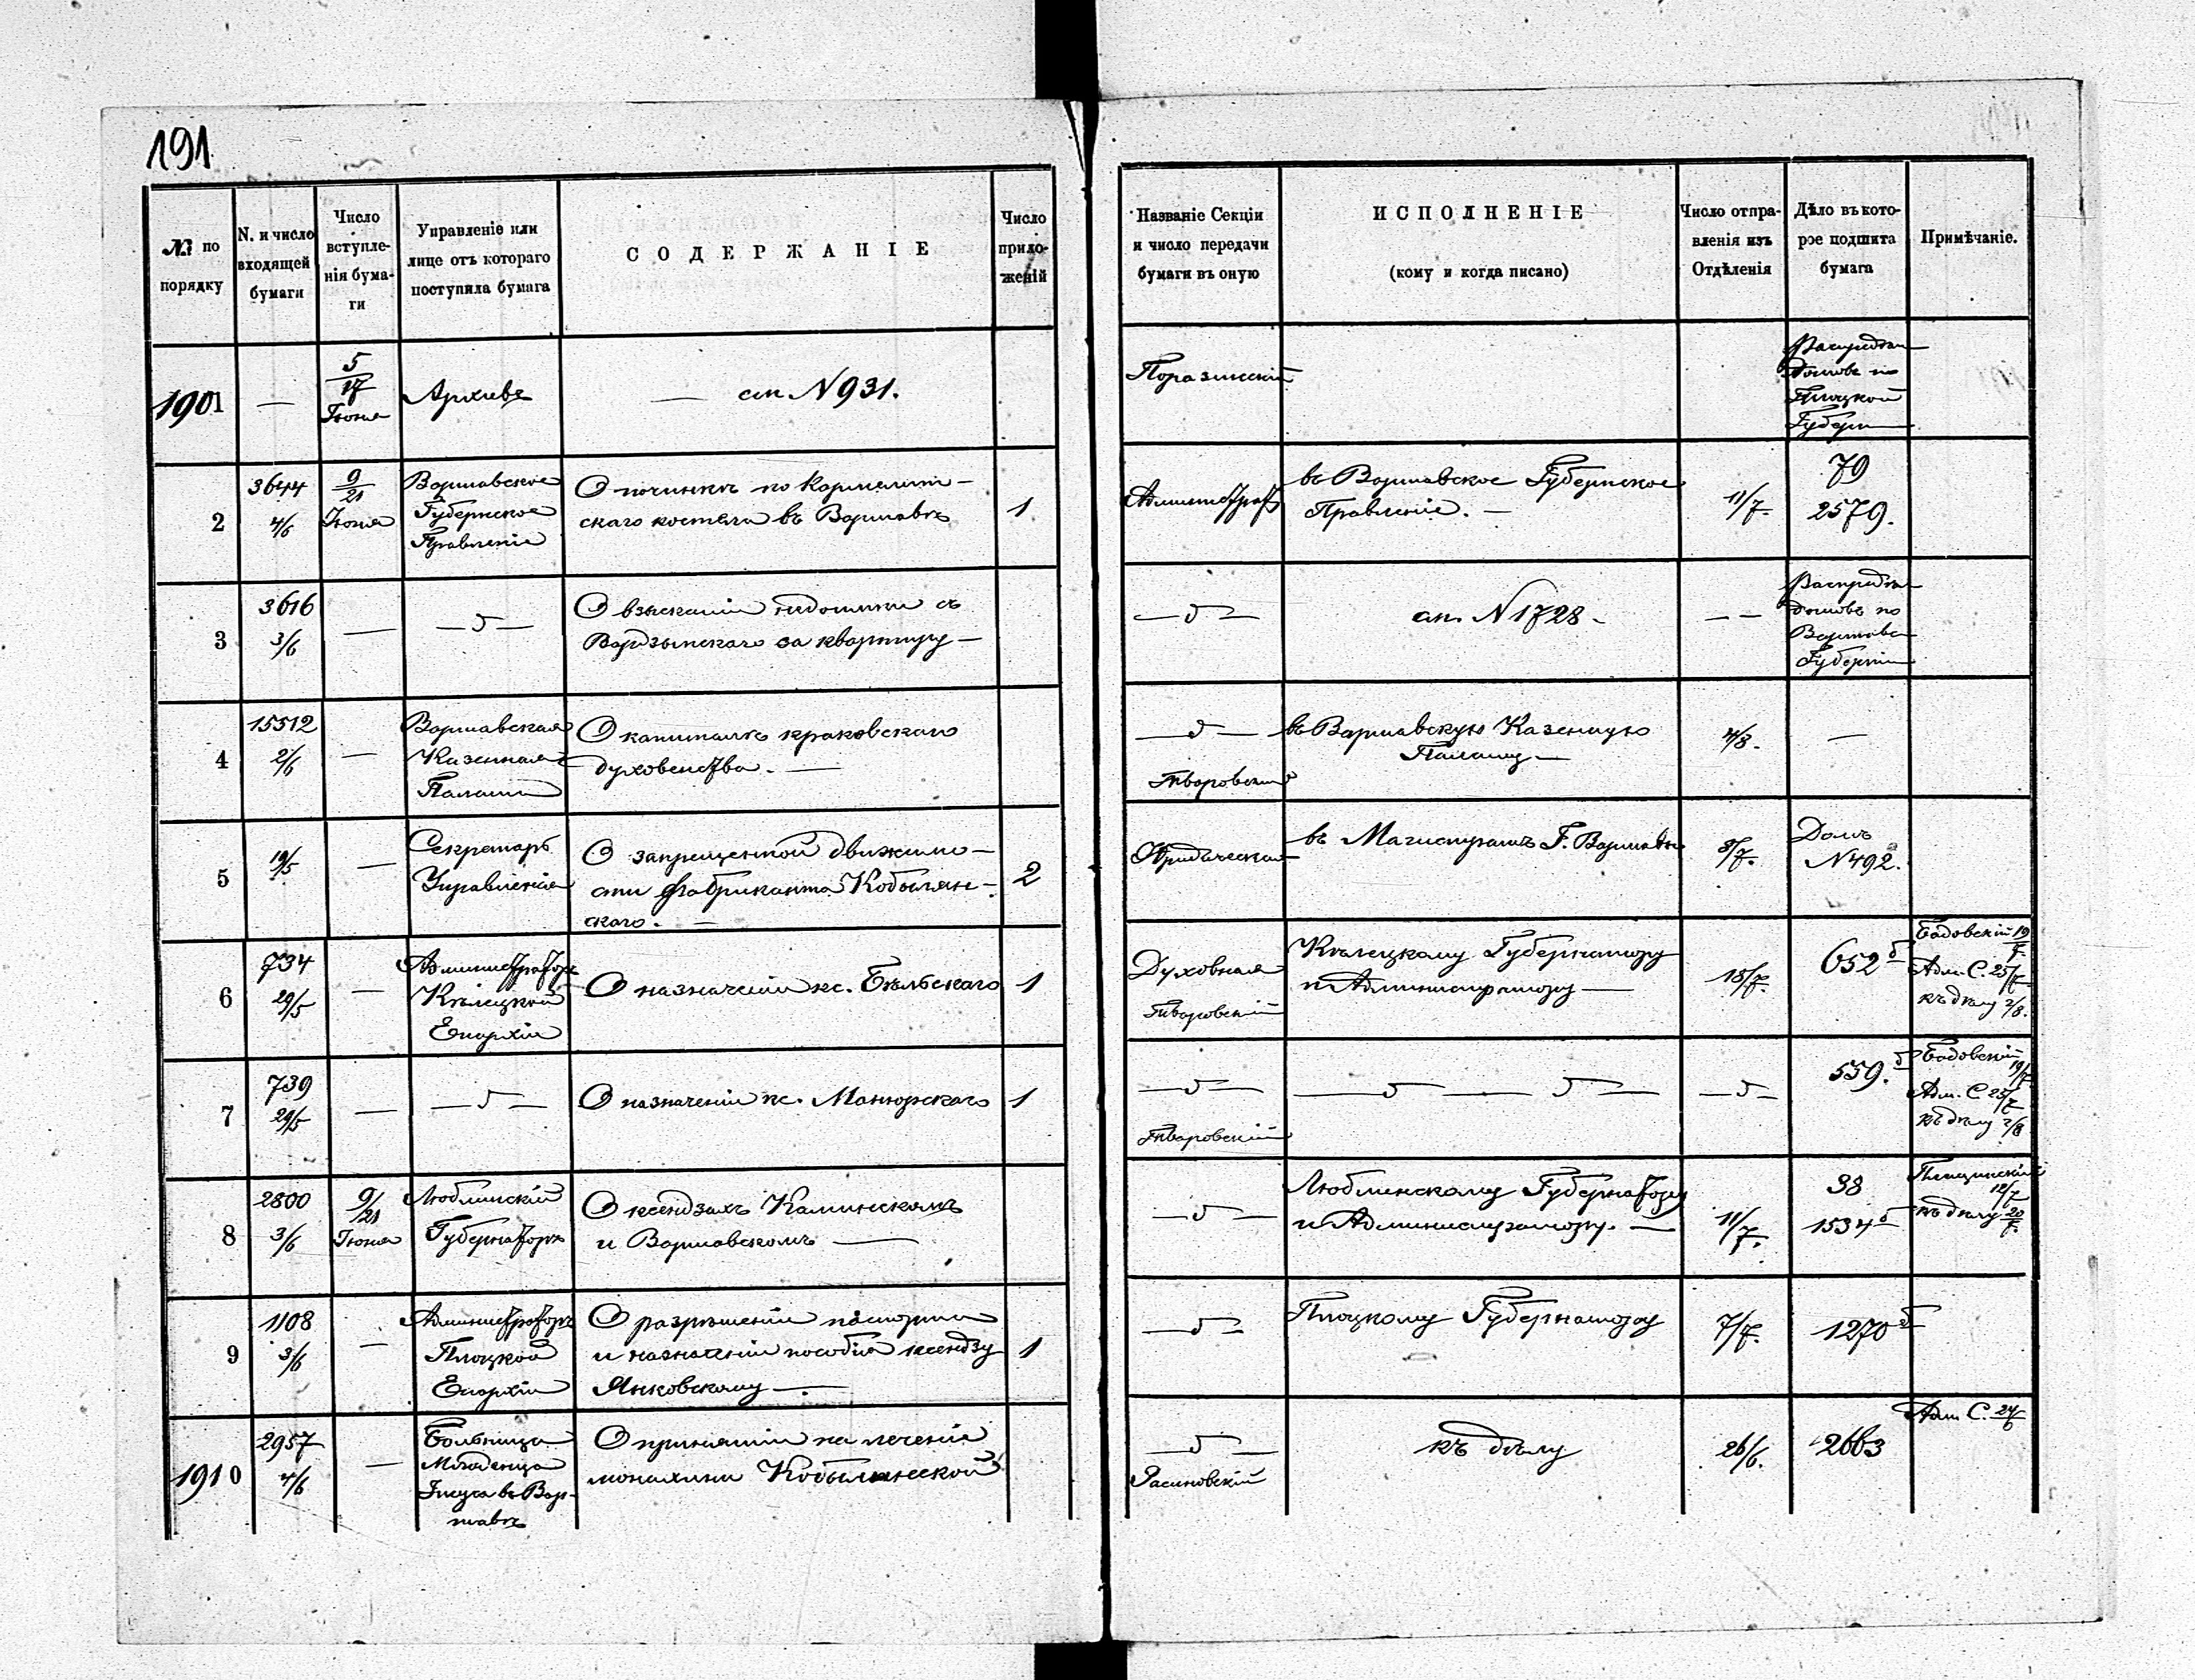 191
№ по порядку
N. и число входящей бумаги
Число вступле-нія бума-ги
Управленіе или лице отъ котораго поступила бумага
СОДЕРЖАНІЕ
Число прило-женій
Названіе Секціи и число передачи бумаги въ оную
ИСПОЛНЕНІЕ
(кому и когда писано)
Число отпра-вленія изъ Отдѣленія
Дѣло въ кото-рое подшита бумага
Примѣчаніе.
1901
—
5/17 Іюня
Архивъ
— см. N 931.
Плоцкой
Губерн
2
3644
4/6
9/21 Іюня
Варшавское
Губернское
Правленіе
О починкѣ по Кармелит-
скаго костела въ Варшавѣ
1
въ Варшавское Губернское
Правленіе. —
11/7.
79
2579.
3
3616
3/6
—
—„—
О взысканіи недоимки съ
за квартиру —
—„—
см. N 1728.
— —
домовъ по
Варшавс
Губерніи
4
15512
2/6
—
Варшавская
Казенная
Палата
О капиталѣ краковскаго
духовенства. —
—„—
Тваровскій
въ Варшавскую Казенную
Палату —
4/8.
—
5
19/5
—
Секретарь
Управленія
О запрещенной движимо-
сти фабриканта Кобылян-
скаго. —
2
Юридическая
въ Магистратъ Г. Варшавы
8/7.
Домъ
N 492.
6
734
29/5
—
Администраторъ
Кѣлецкой
Епархіи
О назначеніи кс. Бѣльскаго
1
Духовная
Тваровскій
Кѣлецкому Губернатору
и Администратору —
18/7.
652 б
Бадовскій 19/7
Адм. С. 25/7
къ дѣлу 2/8.
7
739
29/5
—
—„—
О назначеніи кс.
1
—„—
Тваровскій
—„— —„—
—„—
559. б
Бадовскій 19/7
Адм. С 25/7
къ дѣлу 2/8
8
2800
3/6
9/21 Іюня
Люблинскій
Губернаторъ
О ксендзахъ Каминскомъ
и Варшавскомъ —
—„—
Люблинскому Губернатору
и Администратору. —
11/7.
38
1534 б
12/7
къ дѣлу 20/7.
9
1108
3/6
—
Администраторъ
Плоцкой
Епархіи
О разрѣшеніи паспорта
и назначеніи пособія ксендзу
Янковскому —
1
—„—
Плоцкому Губернатору
7/7.
1270 б
1910
2957
4/6
—
Больница
Младенца
Іисуса въ Вар-
шавѣ
О принятіи на леченіе
монахини Кобылинской
—„—
Расиновскій
къ дѣлу
26/6.
2663
Адм С. 24/6